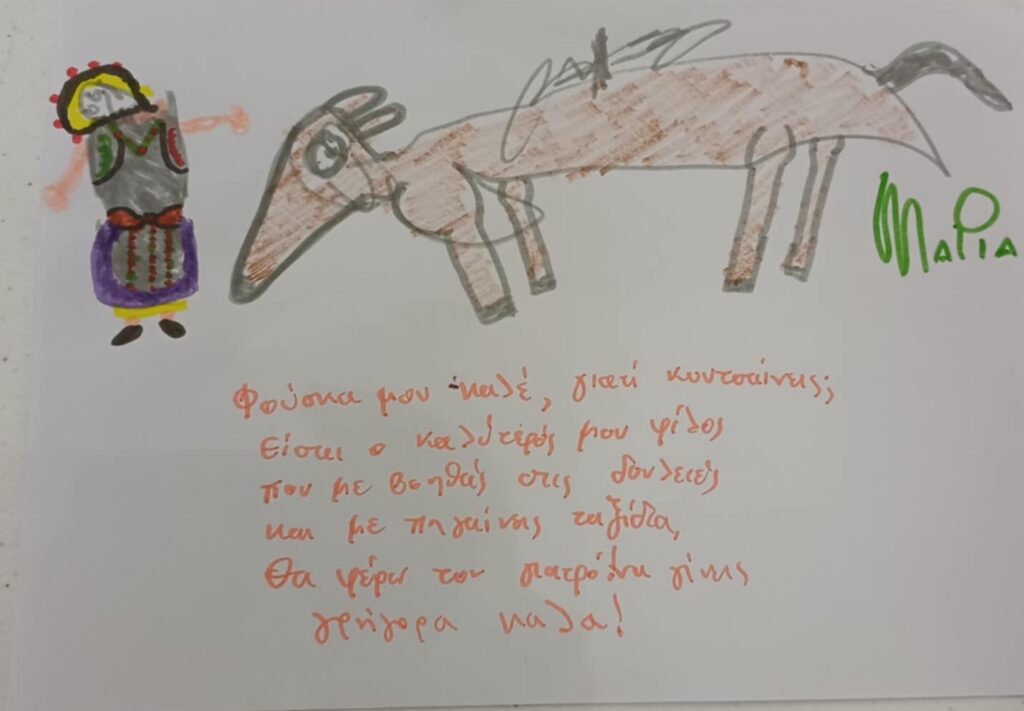 Μαρία
Φούσκα μου καλέ, γιατί κουτσαίνεις;
Είσαι ο καλύτερός μου φίλος
που με βοηθάς στις δουλειές
και με πηγαίνεις ταξίδια,
Θα φέρω τον γιατρό να γίνεις
γρήγορα καλα!